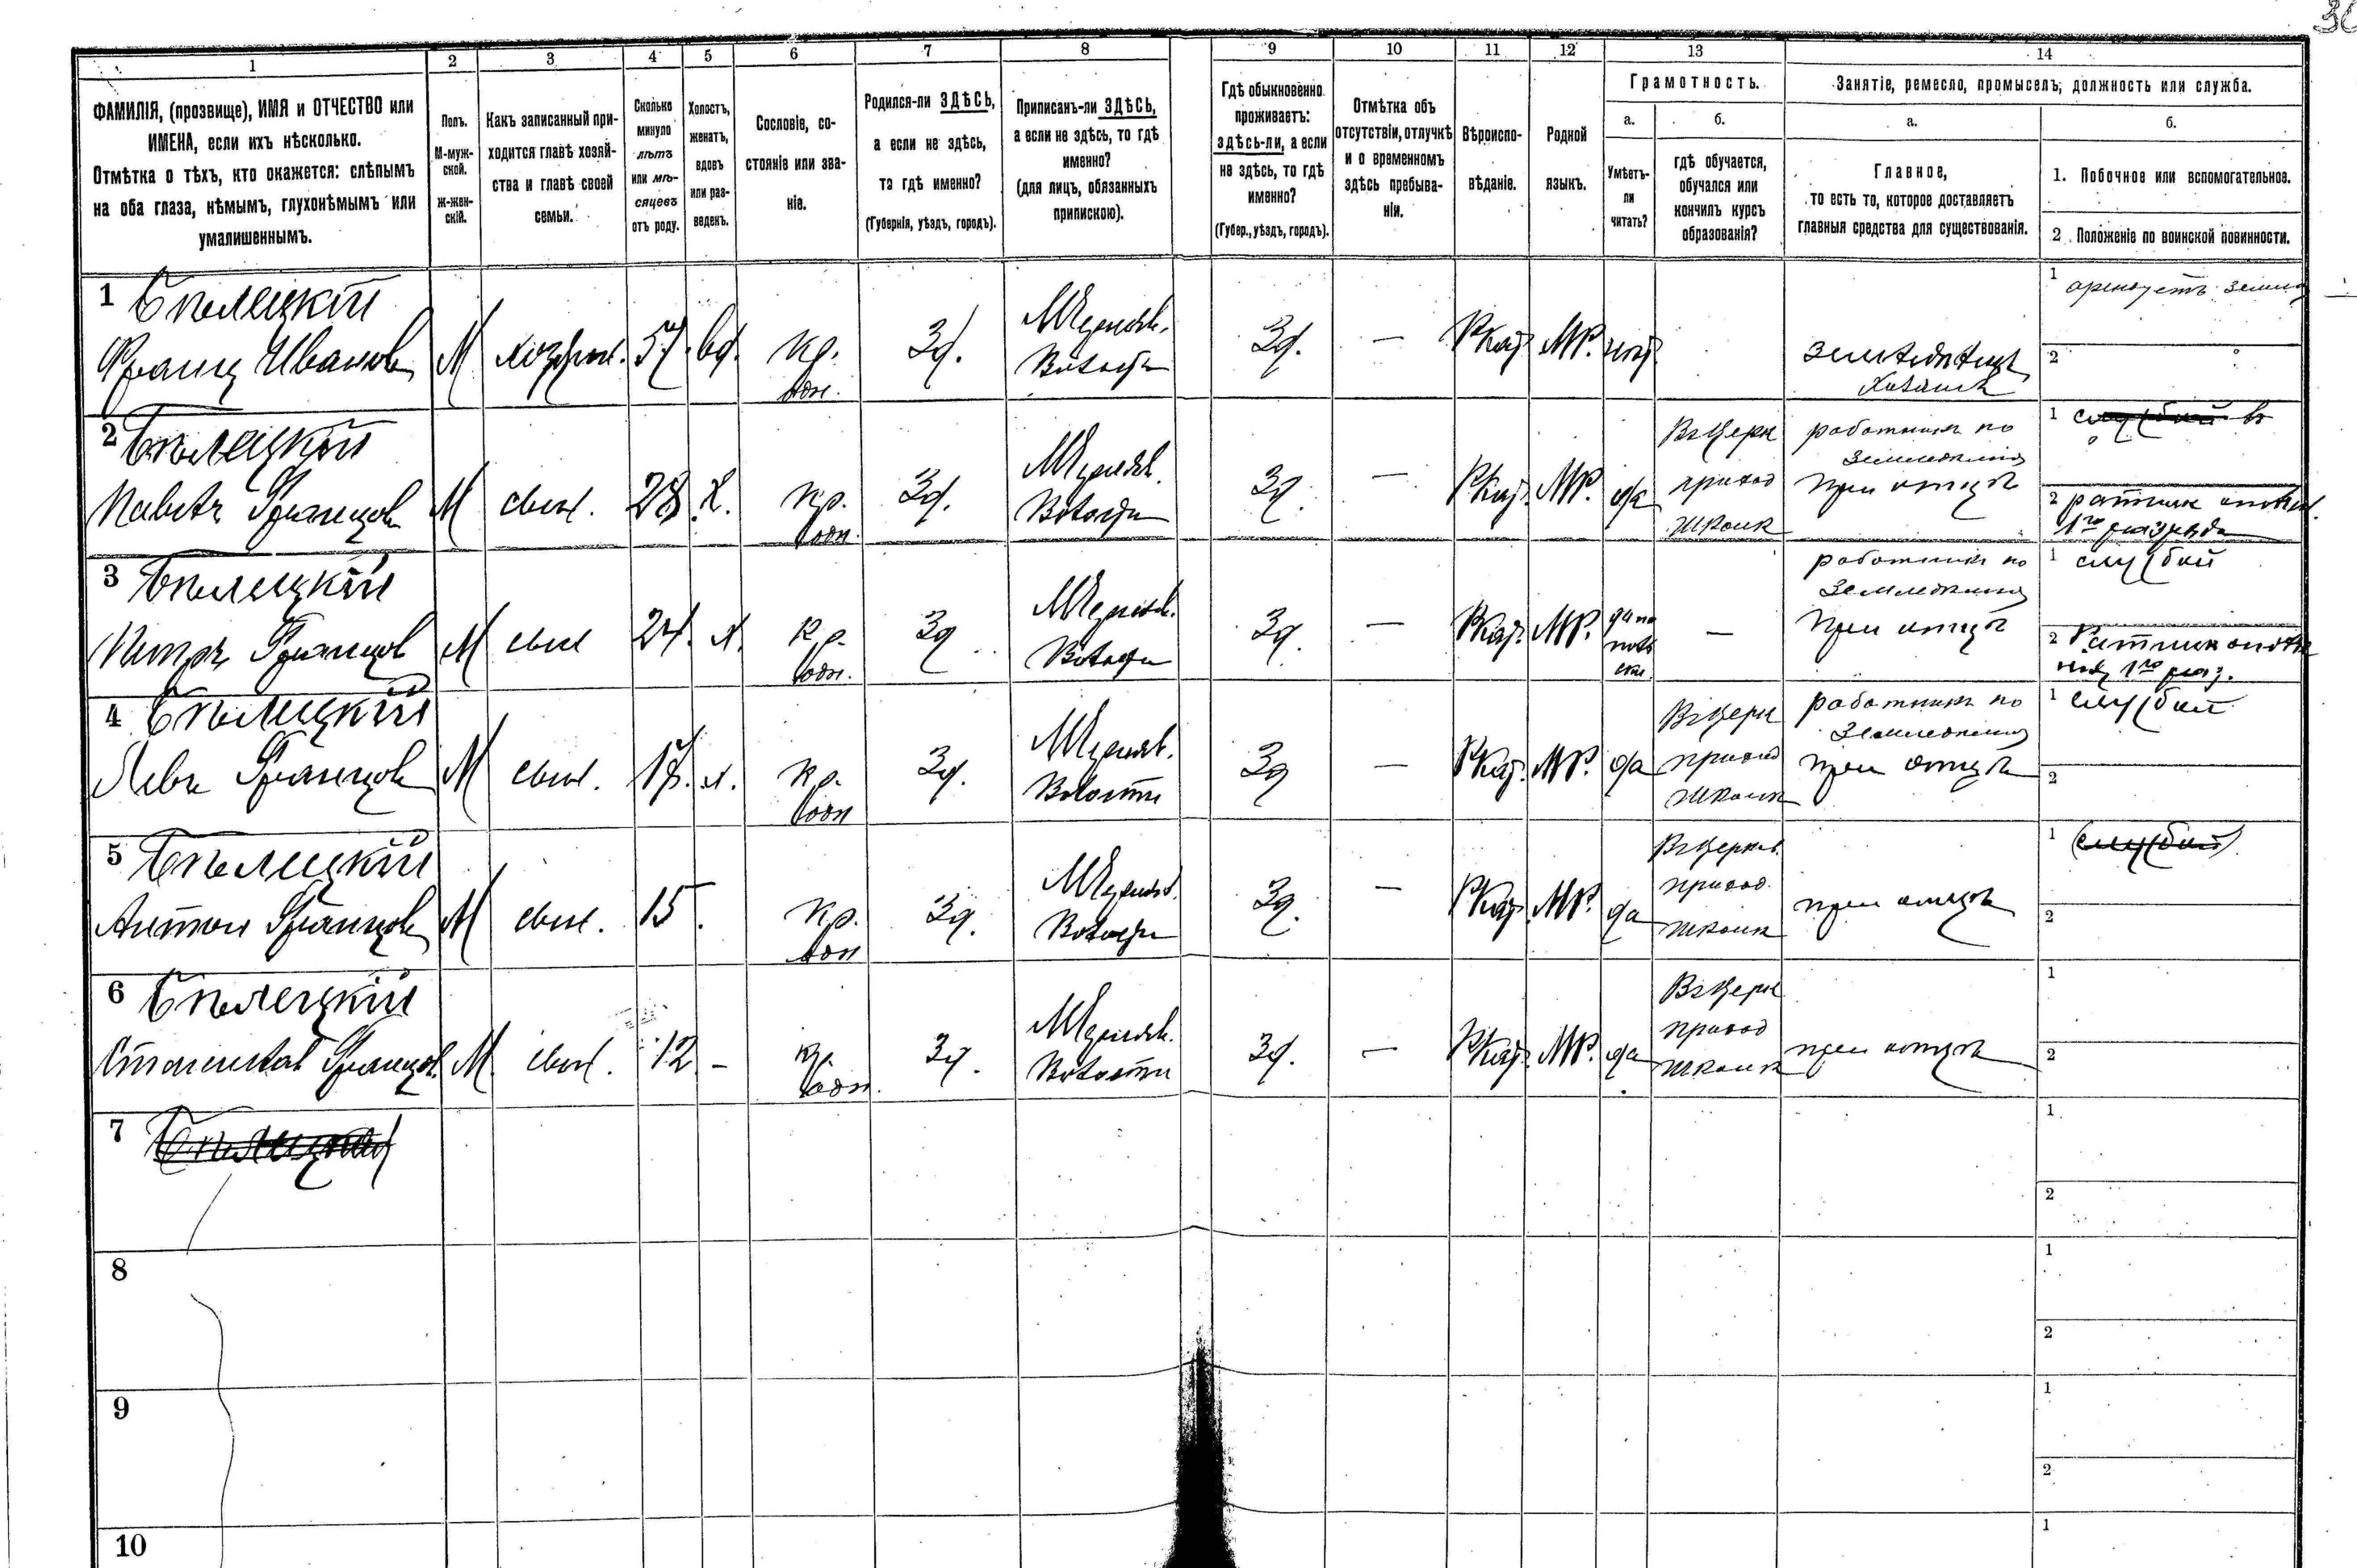 1
2
3
4
5
6
7
8
9
10
11
12
13
14
ФАМИЛІЯ, (прозвище), ИМЯ и ОТЧЕСТВО или
ИМЕНА, если ихъ нѣсколько.
Отмѣтка о тѣхъ, кто окажется: слѣпымъ
на оба глаза, нѣмымъ, глухонѣмымъ или
умалишеннымъ.
Полъ.
М-муж-
ской.
ж-жен-
скій.
Какъ записанный при-
ходится главѣ хозяй-
ства и главѣ своей
семьи.
Сколько
минуло
лѣтъ
или мѣ-
сяцевъ
отъ роду.
Холостъ,
женатъ,
вдовъ
или раз-
веденъ.
Сословіе, со-
стояніе или зва-
ніе.
Родился-ли ЗДѢСЬ,
а если не здѣсь,
то гдѣ именно?
(Губернія, уѣздъ, городъ).
Приписанъ-ли ЗДѢСЬ,
а если не здѣсь, то гдѣ
именно?
(для лицъ, обязанныхъ
припискою).
Гдѣ обыкновенно
проживаетъ:
здѣсь-ли, а если
не здѣсь, то гдѣ
именно?
(Губер., уѣздъ, городъ).
Отмѣтка объ
отсутствіи, отлучкѣ
и о временномъ
здѣсь пребыва-
ніи.
Вѣроиспо-
вѣданіе.
Родной
языкъ.
Грамотность.
а.
Умѣетъ-
ли
читать?
б.
гдѣ обучается,
обучался или
кончилъ курсъ
образованія?
Занятіе, ремесло, промыселъ, должность или служба.
а.
Главное,
то есть то, которое доставляетъ
главныя средства для существованія.
б.
1. Побочное или вспомогательное.
2. Положеніе по воинской повинности.
1 Бѣлецкій
Францъ Ивановъ
М
хозяинъ.
57.
вд.
кр.
Зд.
Волости
Зд.
—
РКат.
МР.
нѣт.
Земледѣлецъ
Хозяинъ
1 арендуетъ землю
2
2 Бѣлецкій
Павелъ Францовъ
М
сынъ.
28.
х.
кр.
Зд.
Волости
Зд.
—
РКат.
МР.
да
Въ Церк
приход
школѣ
работникъ по
Земледѣлію
при отцѣ
1
2 ратник ополч.
1го разряда
3 Бѣлецкій
Петръ Францовъ
М
сынъ
24.
х.
кр.
Зд
Волости
Зд.
—
РКат.
МР.
да по
поль
ски.
—
работникъ по
Земледѣлію
При отцѣ
1
2 Ратник ополче
1го раз.
4 Бѣлецкій
Левъ Францовъ
М
сынъ.
17.
х.
кр.
Зд.
Волости
Зд
—
РКат.
МР.
да
Въ Церк
приход
школѣ
работникъ по
Земледѣлію
при отцѣ
1
2
5 Бѣлецкій
Антонъ Францовъ
М
сынъ.
15.
кр.
Зд.
Волости
Зд.
—
РКат.
МР.
да
Въ Церков.
приход.
школѣ
при отцѣ
1
2
6 Бѣлецкій
Станиславъ Францов.
М.
сынъ.
12
-
кр.
Зд.
Волости
Зд.
—
РКат.
МР.
да
Въ Церк
приход
школѣ
при отцѣ
1
2
7
1
2
8
1
2
9
1
2
10
1